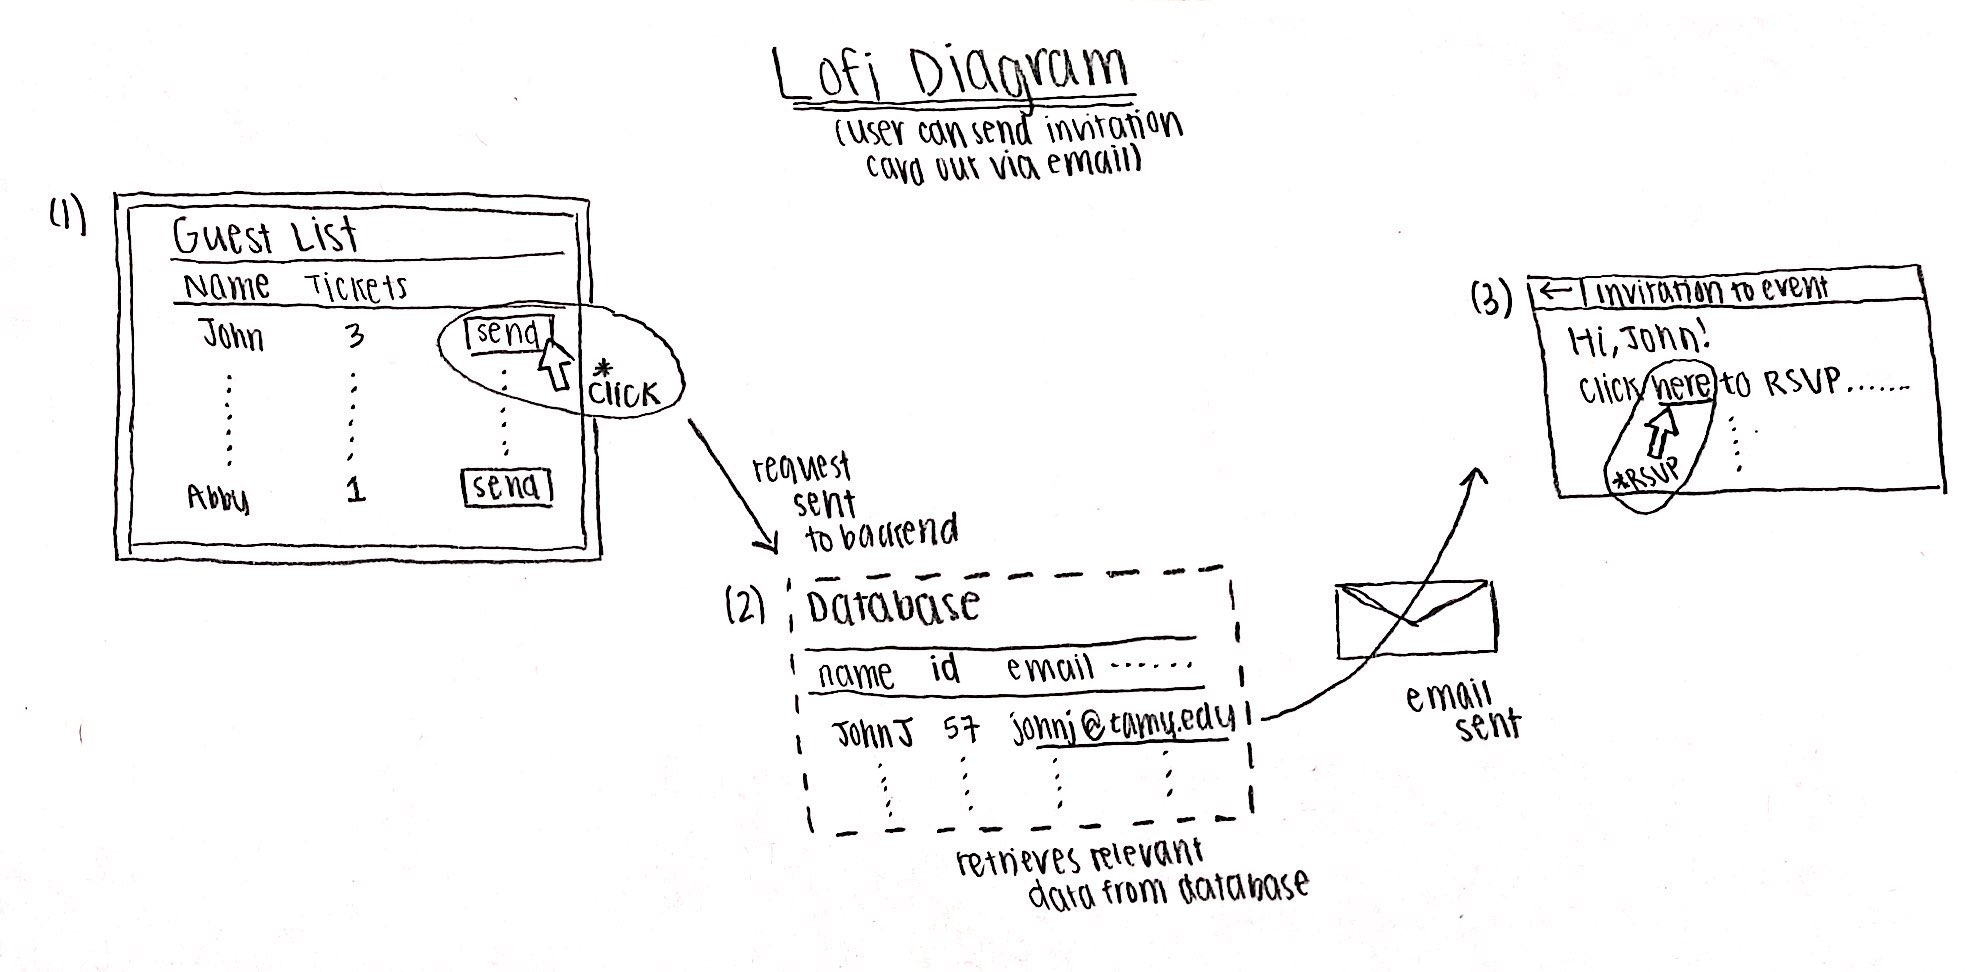 Lofi Diagram
(user can send invitation
card out via email)
(1)
Guest List
Name Tickets
John 3 send
*
click
Abby 1 send
request
sent
to backend
(2)
Database
name id email ......
John J 57 johnj@tamu.edu
retrieves relevant
data from database
email
sent
(3)
← Invitation to event
Hi, John!
click here to RSVP.......
*RSVP